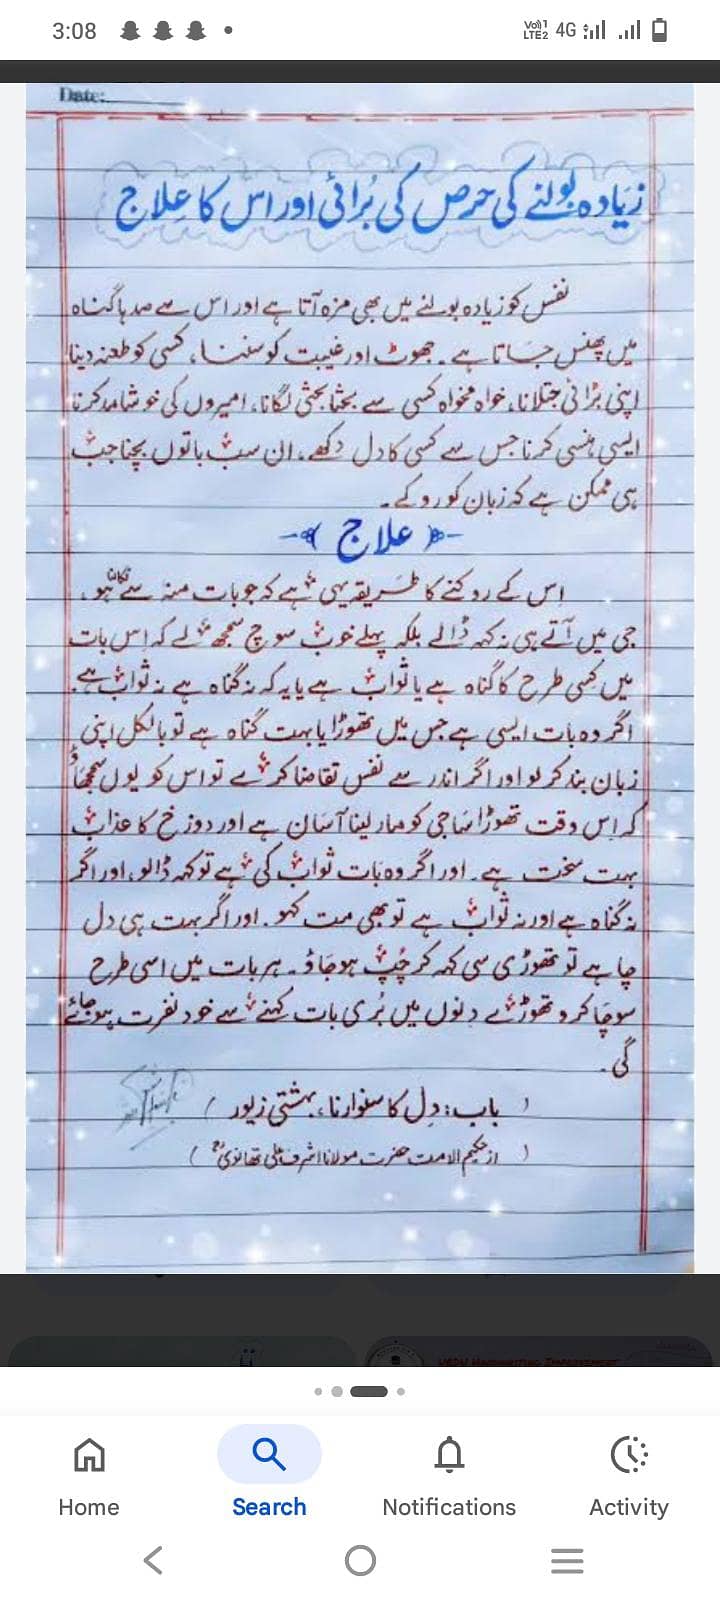 3:08
Vo) 1
LTE2 4G
Date:
زیادہ بولنے کی حرص کی بُرائی اور اس کا عِلاج
نفس کو زیادہ بولنے میں بھی مزہ آتا ہے اور اس سے صدہا گناہ
میں پھنس جاتا ہے۔ جھوٹ اور غیبت کو سننا، کسی کو طعنہ دینا
اپنی بڑائی جتلانا، خواہ مخواہ کسی سے بحثا بحثی لگانا، امیروں کی خوشامد کرنا
ایسی ہنسی کرنا جس سے کسی کا دل دکھے، ان سب باتوں بچنا جب
ہی ممکن ہے کہ زبان کو روکے۔
علاج
اس کے روکنے کا طریقہ یہی ہے کہ جو بات منہ سے نکالنی ہو،
جی میں آتے ہی نہ کہہ ڈالے بلکہ پہلے خوب سوچ سمجھ لے کہ اس بات
میں کسی طرح کا گناہ ہے یا ثواب ہے یا یہ کہ نہ گناہ ہے نہ ثواب ہے۔
اگر وہ بات ایسی ہے جس میں تھوڑا یا بہت گناہ ہے تو بالکل اپنی
زبان بند کر لو اور اگر اندر سے نفس تقاضا کرے تو اس کو یوں سمجھاؤ
کہ اس وقت تھوڑا سا جی کو مار لینا آسان ہے اور دوزخ کا عذاب
بہت سخت ہے۔ اور اگر وہ بات ثواب کی ہے تو کہہ ڈالو، اور اگر
نہ گناہ ہے اور نہ ثواب ہے تو بھی مت کہو۔ اور اگر بہت ہی دل
چاہے تو تھوڑی سی کہہ کر چُپ ہو جاؤ۔ ہر بات میں اسی طرح
سوچا کرو تھوڑے دنوں میں بُری بات کہنے سے خود نفرت ہو جائے
گی۔
( باب: دِل کا سنوارنا، بہشتی زیور )
( از حکیم الامت حضرت مولانا اشرف علی تھانویؒ )
URDU HANDWRITING IMPROVEMENT
Home
Search
Notifications
Activity